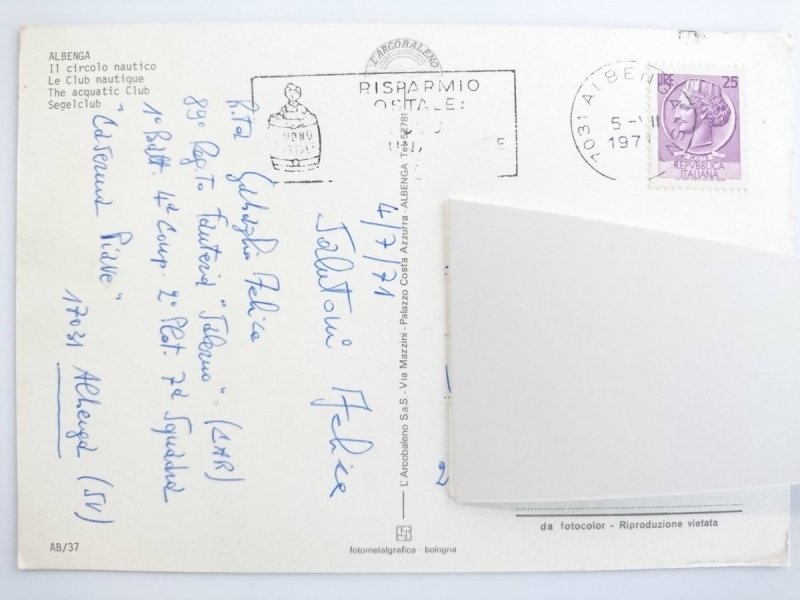 ALBENGA
Il circolo nautico
Le Club nautique
The acquatic Club
Segelclub
L'ARCOBALENO
RISPARMIO
OSTALE:
17031 ALBENGA
5-VII
197
LIRE 25
REPVBBLICA
ITALIANA
4/7/71
Salutoni Felice
Felice
89° Reg.to Fanteria "Salerno" (CAR)
1° Batt. 4ª Comp. 2° Plot. 7ª Squadra
"Caserma Piave"
17031 Albenga (SV)
L'Arcobaleno S.a.S. - Via Mazzini - Palazzo Costa Azzurra - ALBENGA Tel. 52781
2
da fotocolor - Riproduzione vietata
fotometalgrafica · bologna
AB/37